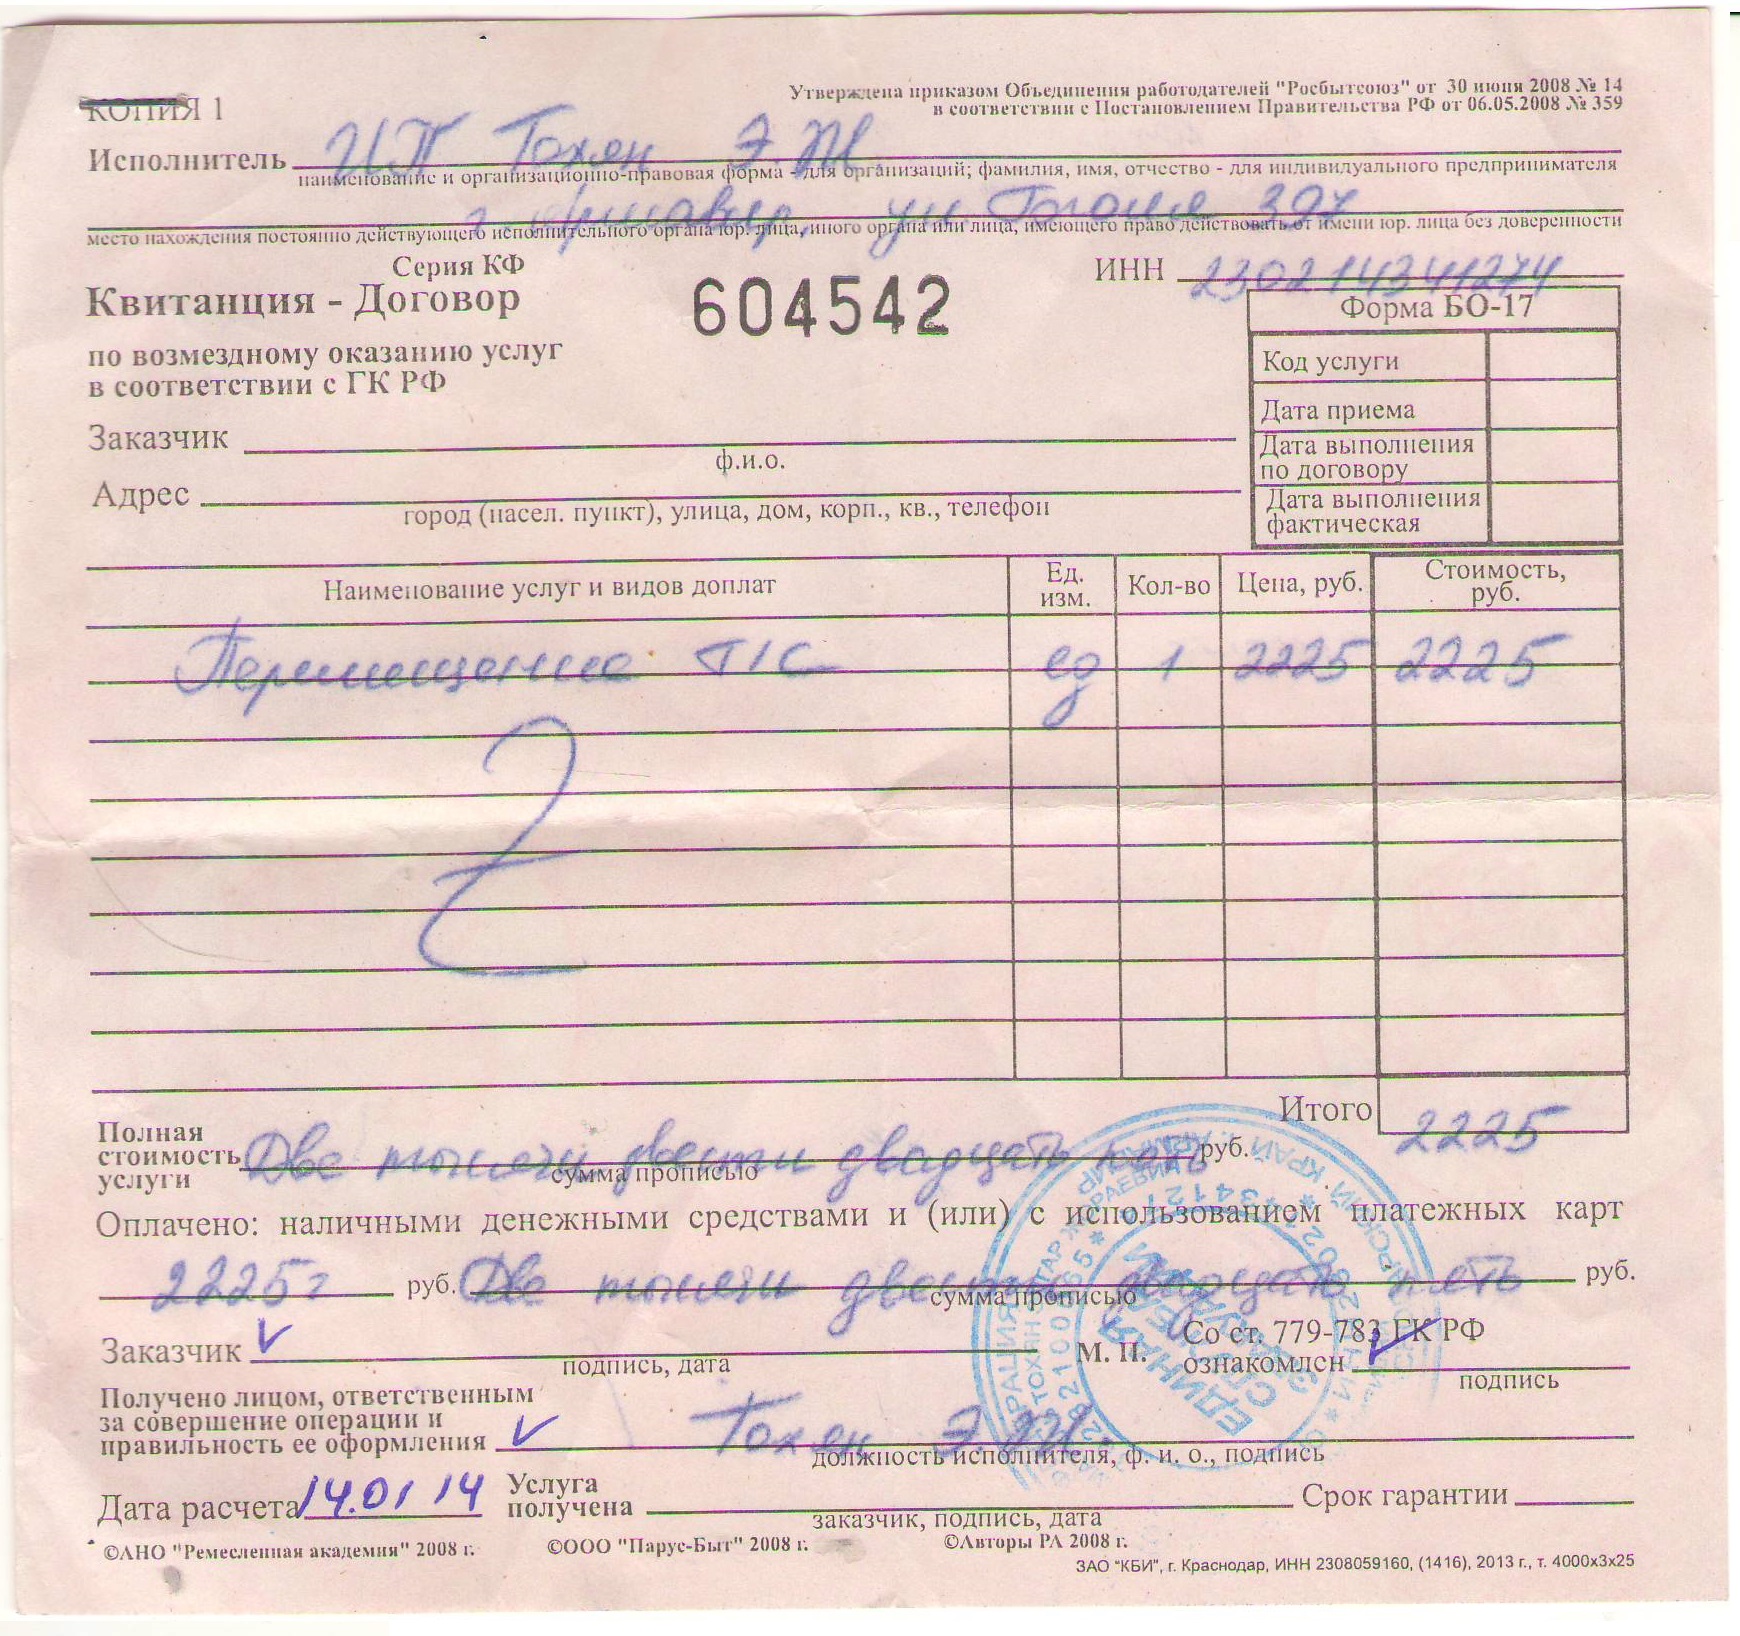 КОПИЯ 1
Утверждена приказом Объединения работодателей "Росбытсоюз" от 30 июня 2008 № 14
в соответствии с Постановлением Правительства РФ от 06.05.2008 № 359
Исполнитель ИП Тохян Э.Ж.
наименование и организационно-правовая форма - для организаций; фамилия, имя, отчество - для индивидуального предпринимателя
г. Армавир, ул. Гоголя
место нахождения постоянно действующего исполнительного органа юр. лица, иного органа или лица, имеющего право действовать от имени юр. лица без доверенности
Серия КФ
Квитанция - Договор 604542
ИНН 230214341274
по возмездному оказанию услуг
в соответствии с ГК РФ
Форма БО-17
Код услуги
Дата приема
Дата выполнения
по договору
Дата выполнения
фактическая
Заказчик
ф.и.о.
Адрес
город (насел. пункт), улица, дом, корп., кв., телефон
Наименование услуг и видов доплат Ед. изм. Кол-во Цена, руб. Стоимость, руб.
Перемещение Т/С ед 1 2225 2225
Итого 2225
Полная
стоимость
услуги Две тысячи двести двадцать пять руб.
сумма прописью
Оплачено: наличными денежными средствами и (или) с использованием платежных карт
2225 руб. Две тысячи двести двадцать пять руб.
сумма прописью
Заказчик
подпись, дата
М. П.
Со ст. 779-783 ГК РФ
ознакомлен
подпись
Получено лицом, ответственным
за совершение операции и
правильность ее оформления Тохян Э.Ж.
должность исполнителя, ф. и. о., подпись
Дата расчета 14.01 14
Услуга
получена
заказчик, подпись, дата
Срок гарантии
©АНО "Ремесленная академия" 2008 г. ©ООО "Парус-Быт" 2008 г. ©Авторы РА 2008 г.
ЗАО "КБИ", г. Краснодар, ИНН 2308059160, (1416), 2013 г., т. 4000х3х25
ЕДИНАЯ